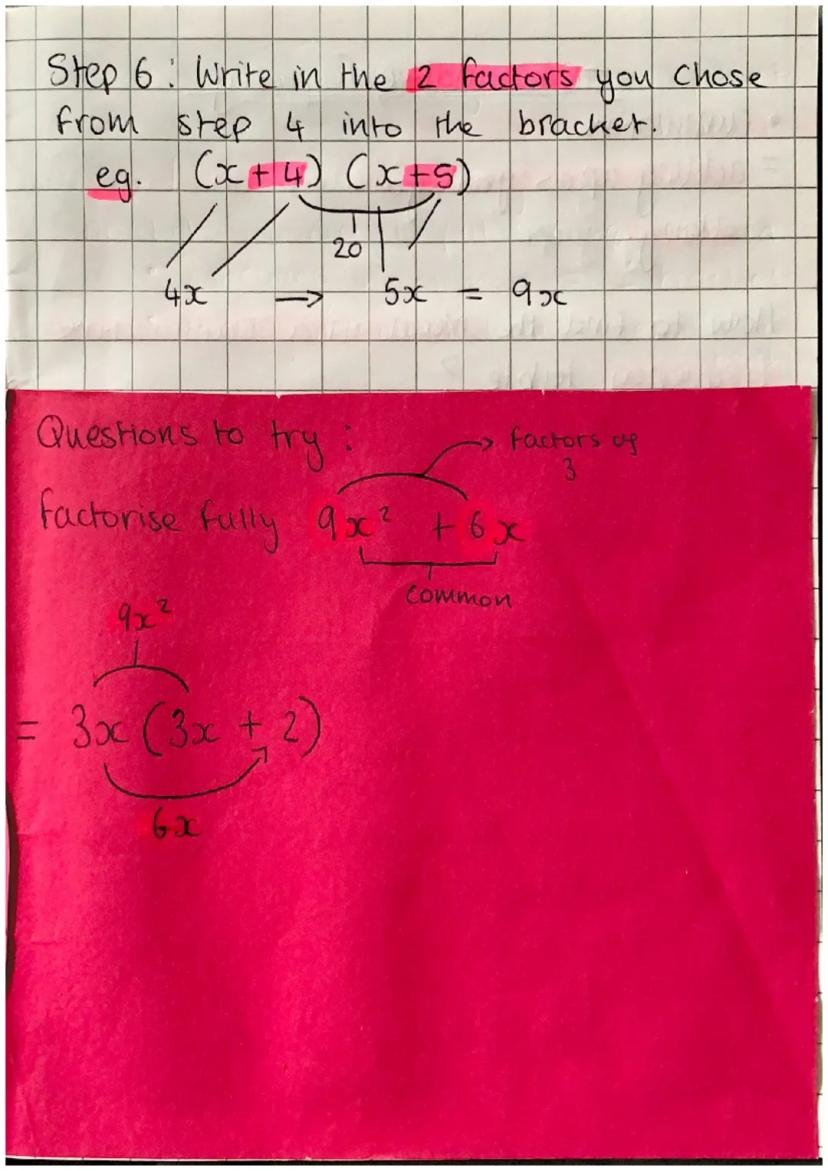 Step 6: Write in the 2 factors you chose
from step 4 into the bracket.
eg. (x+4) (x+5)
20
4x → 5x = 9x
Questions to try:
→ factors of
3
factorise fully 9x² + 6x
common
9x²
= 3x(3x + 2)
6x